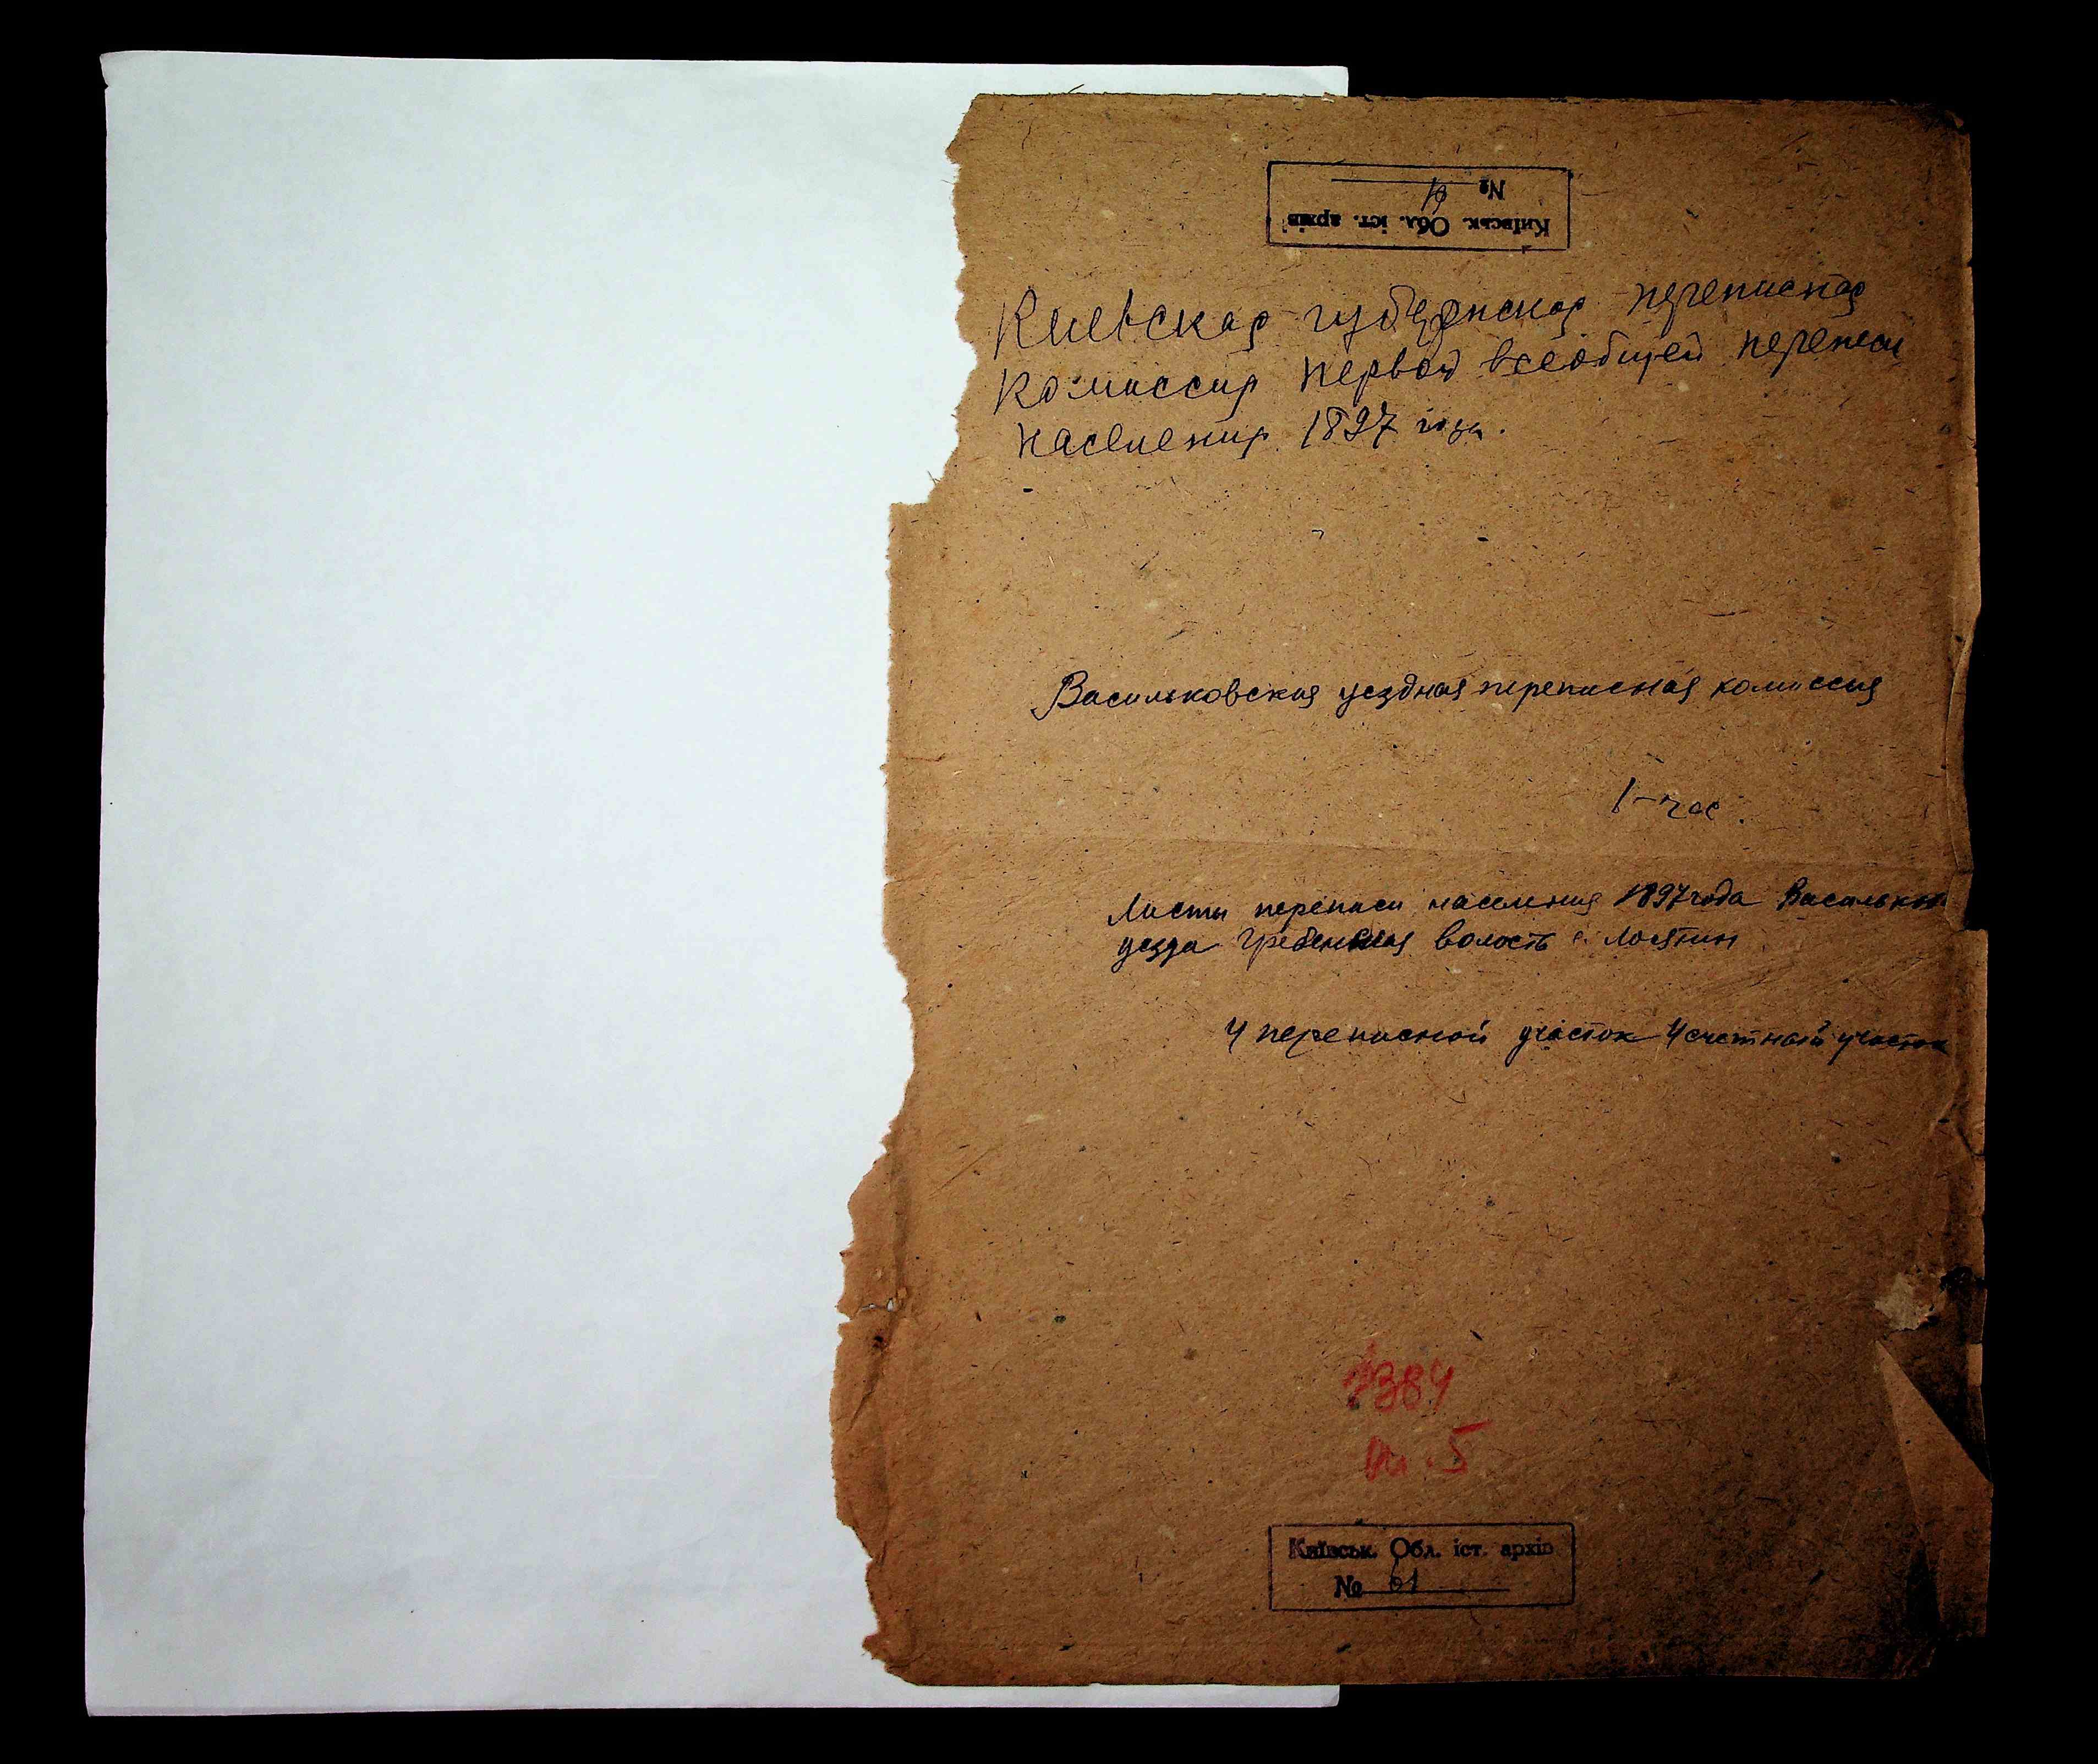 Київськ. Обл. іст. архів
№
Киевская губернская переписная
комиссия первой всеобщей переписи
населения 1897 года.
Васильковская уездная переписная комиссия
1-час.
Листы переписи населения 1897 года Васильков
уезда Гребенская волость с. Лосятин
4 переписной участок 4 счетный участок
384
5
Київськ. Обл. іст. архів
№ 61